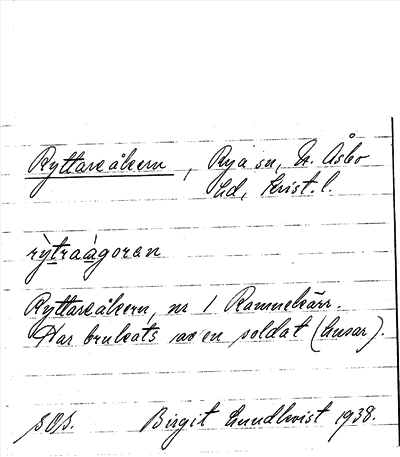 Ryttareåkern, Rya sn, N. Åsbo
hd, Krist. l.
rỳtraàgoran
Ryttareåkern, nr 1 Rammekärr.
Har brukats av en soldat (husar).
SOS. Birgit Lundkvist 1938.